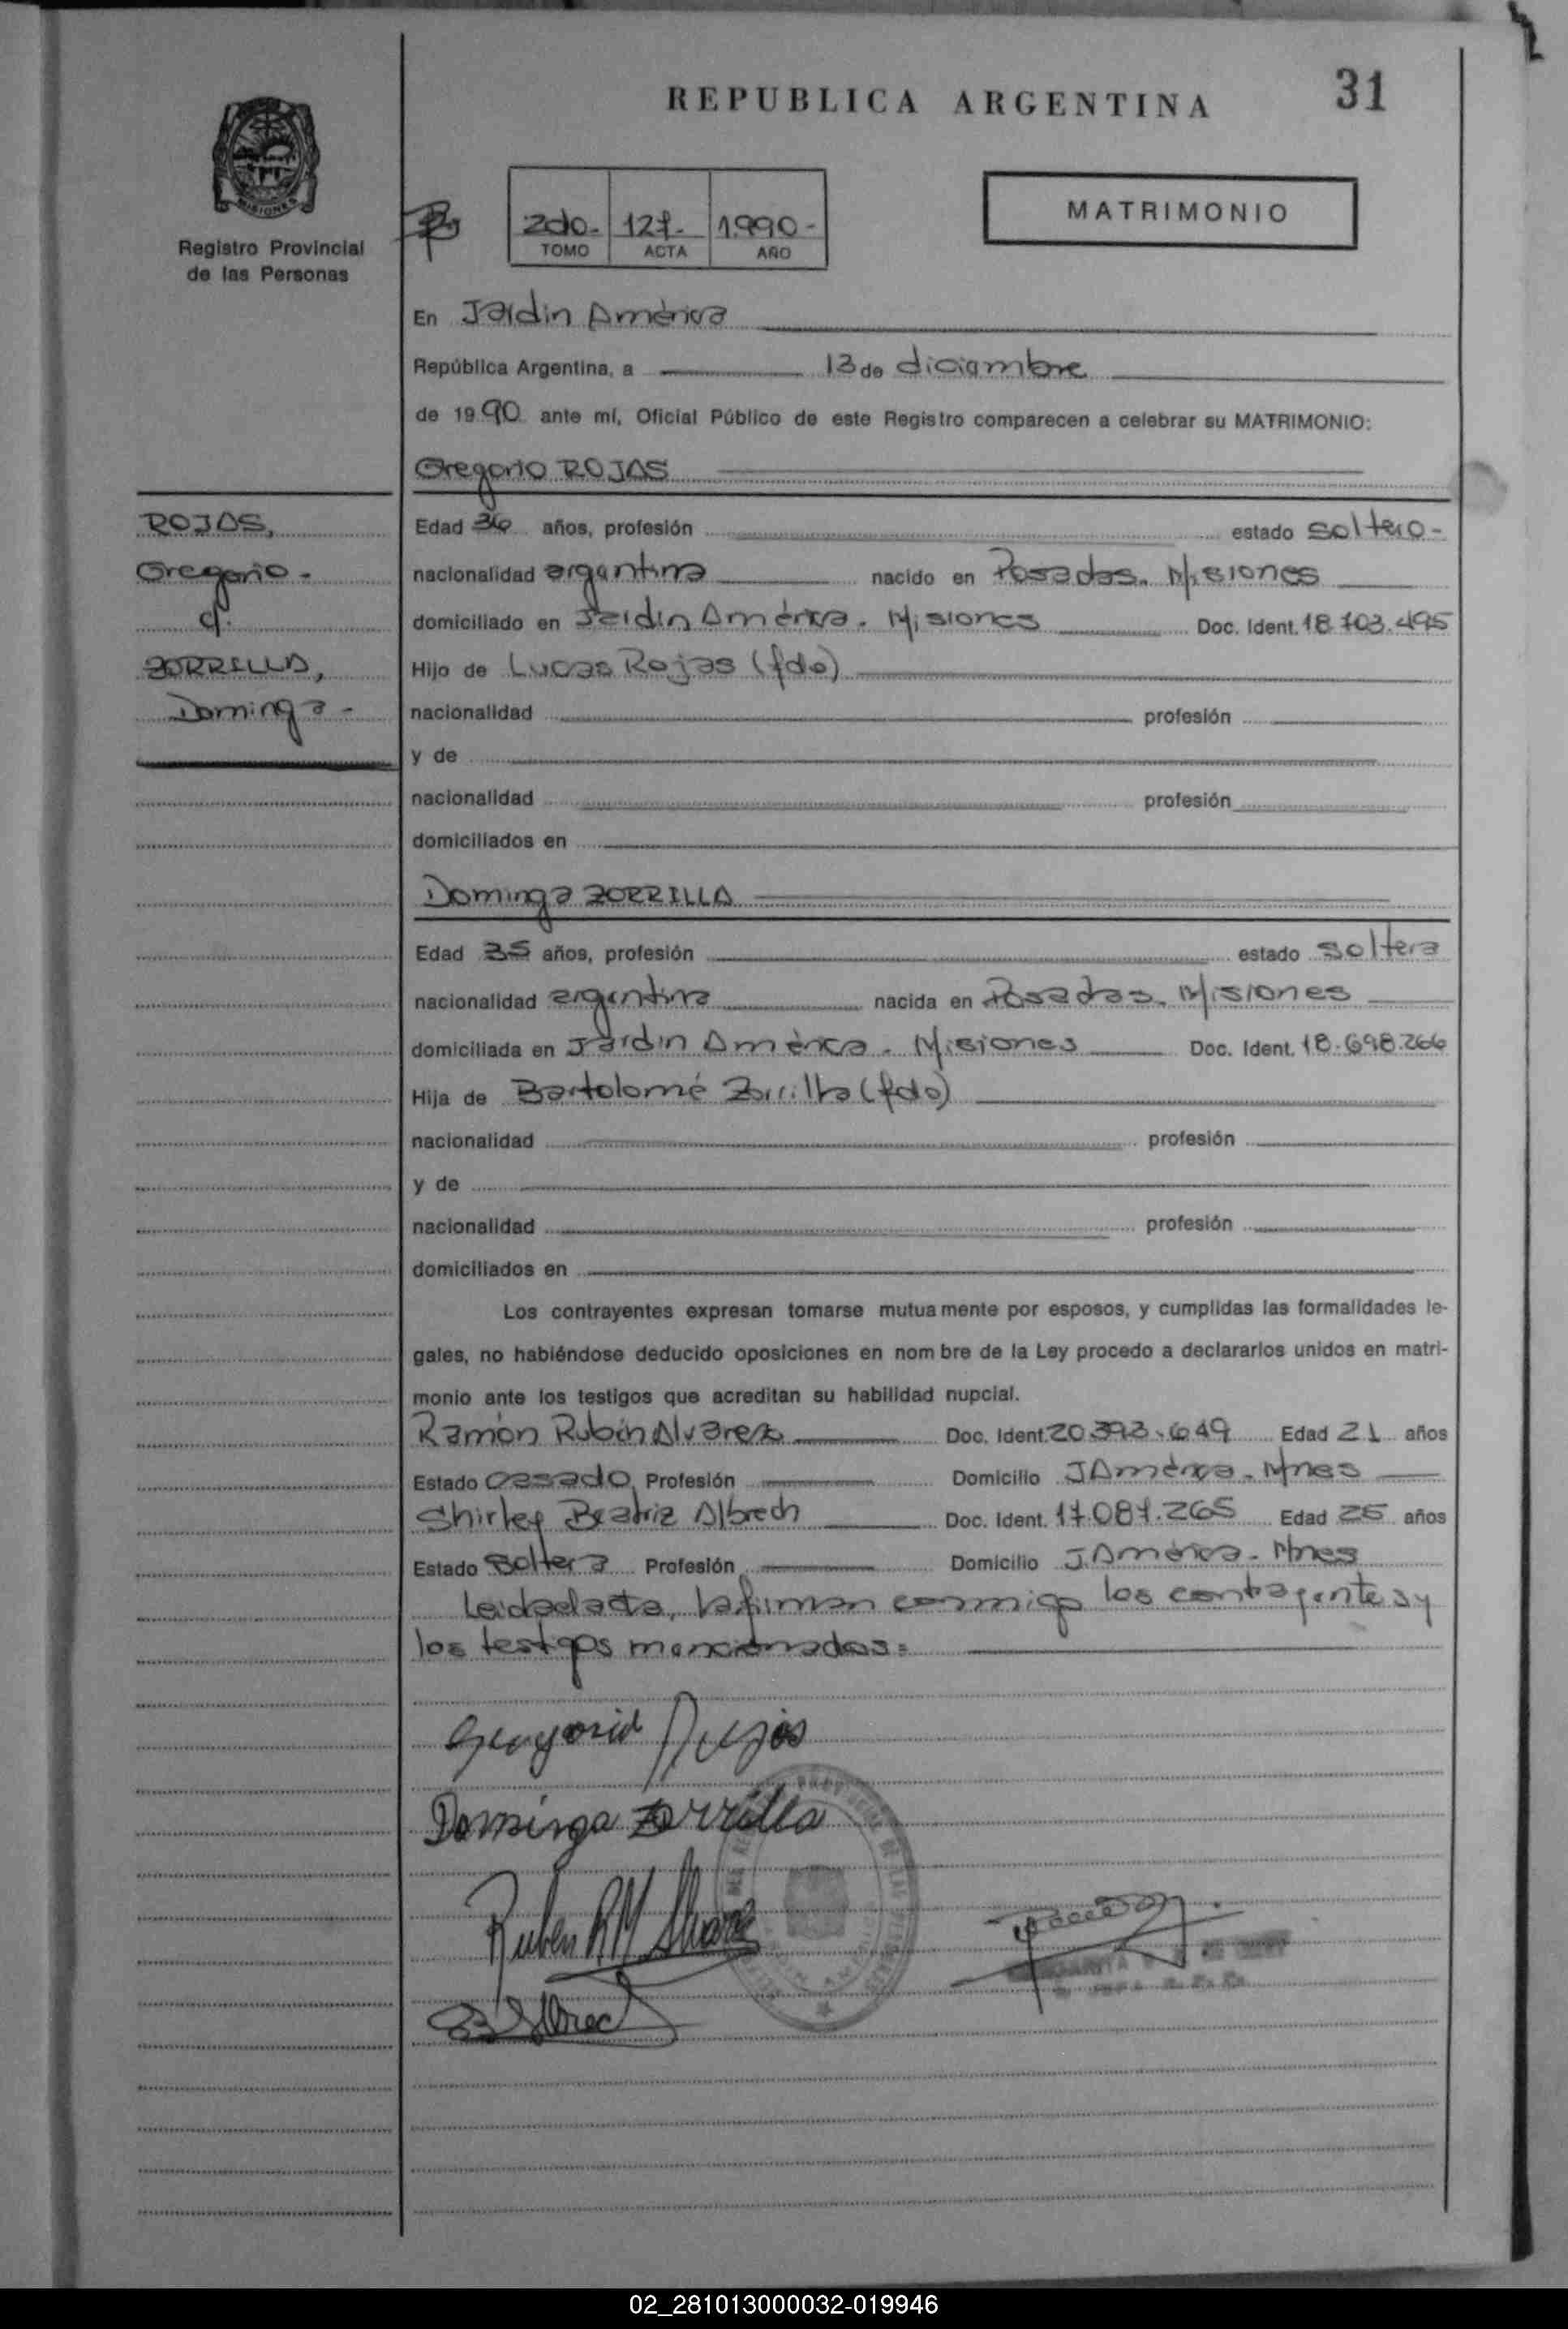 REPUBLICA ARGENTINA
31
MISIONES
Registro Provincial
de las Personas
2do- 127- 1.990-
TOMO ACTA AÑO
MATRIMONIO
En Jardín América
República Argentina, a 13 de diciembre
de 1990 ante mí, Oficial Público de este Registro comparecen a celebrar su MATRIMONIO:
Gregorio ROJAS
ROJAS,
Gregorio-
c/.
ZORRILLA,
Dominga-
Edad 36 años, profesión estado soltero-
nacionalidad argentina nacido en Posadas. Misiones
domiciliado en Jardín América. Misiones Doc. Ident. 18.703.495
Hijo de Lucas Rojas (fdo)
nacionalidad profesión
y de
nacionalidad profesión
domiciliados en
Dominga ZORRILLA
Edad 35 años, profesión estado soltera
nacionalidad argentina nacida en Posadas. Misiones
domiciliada en Jardín América. Misiones Doc. Ident. 18.698.266
Hija de Bartolomé Zorrilla (fdo)
nacionalidad profesión
y de
nacionalidad profesión
domiciliados en
Los contrayentes expresan tomarse mutuamente por esposos, y cumplidas las formalidades le-
gales, no habiéndose deducido oposiciones en nombre de la Ley procedo a declararlos unidos en matri-
monio ante los testigos que acreditan su habilidad nupcial.
Ramón Rubén Alvarez Doc. Ident. 20.393.649 Edad 21 años
Estado casado Profesión Domicilio J América. Mnes
Shirley Beatriz Albrech Doc. Ident. 17.087.265 Edad 25 años
Estado Soltera Profesión Domicilio J.América. Mnes
Leida el acta, la firman conmigo los contrayentes y
los testigos mencionados=
Gregorio Rojas
Dominga Zorrilla
Ruben RM Alvarez
02_281013000032-019946